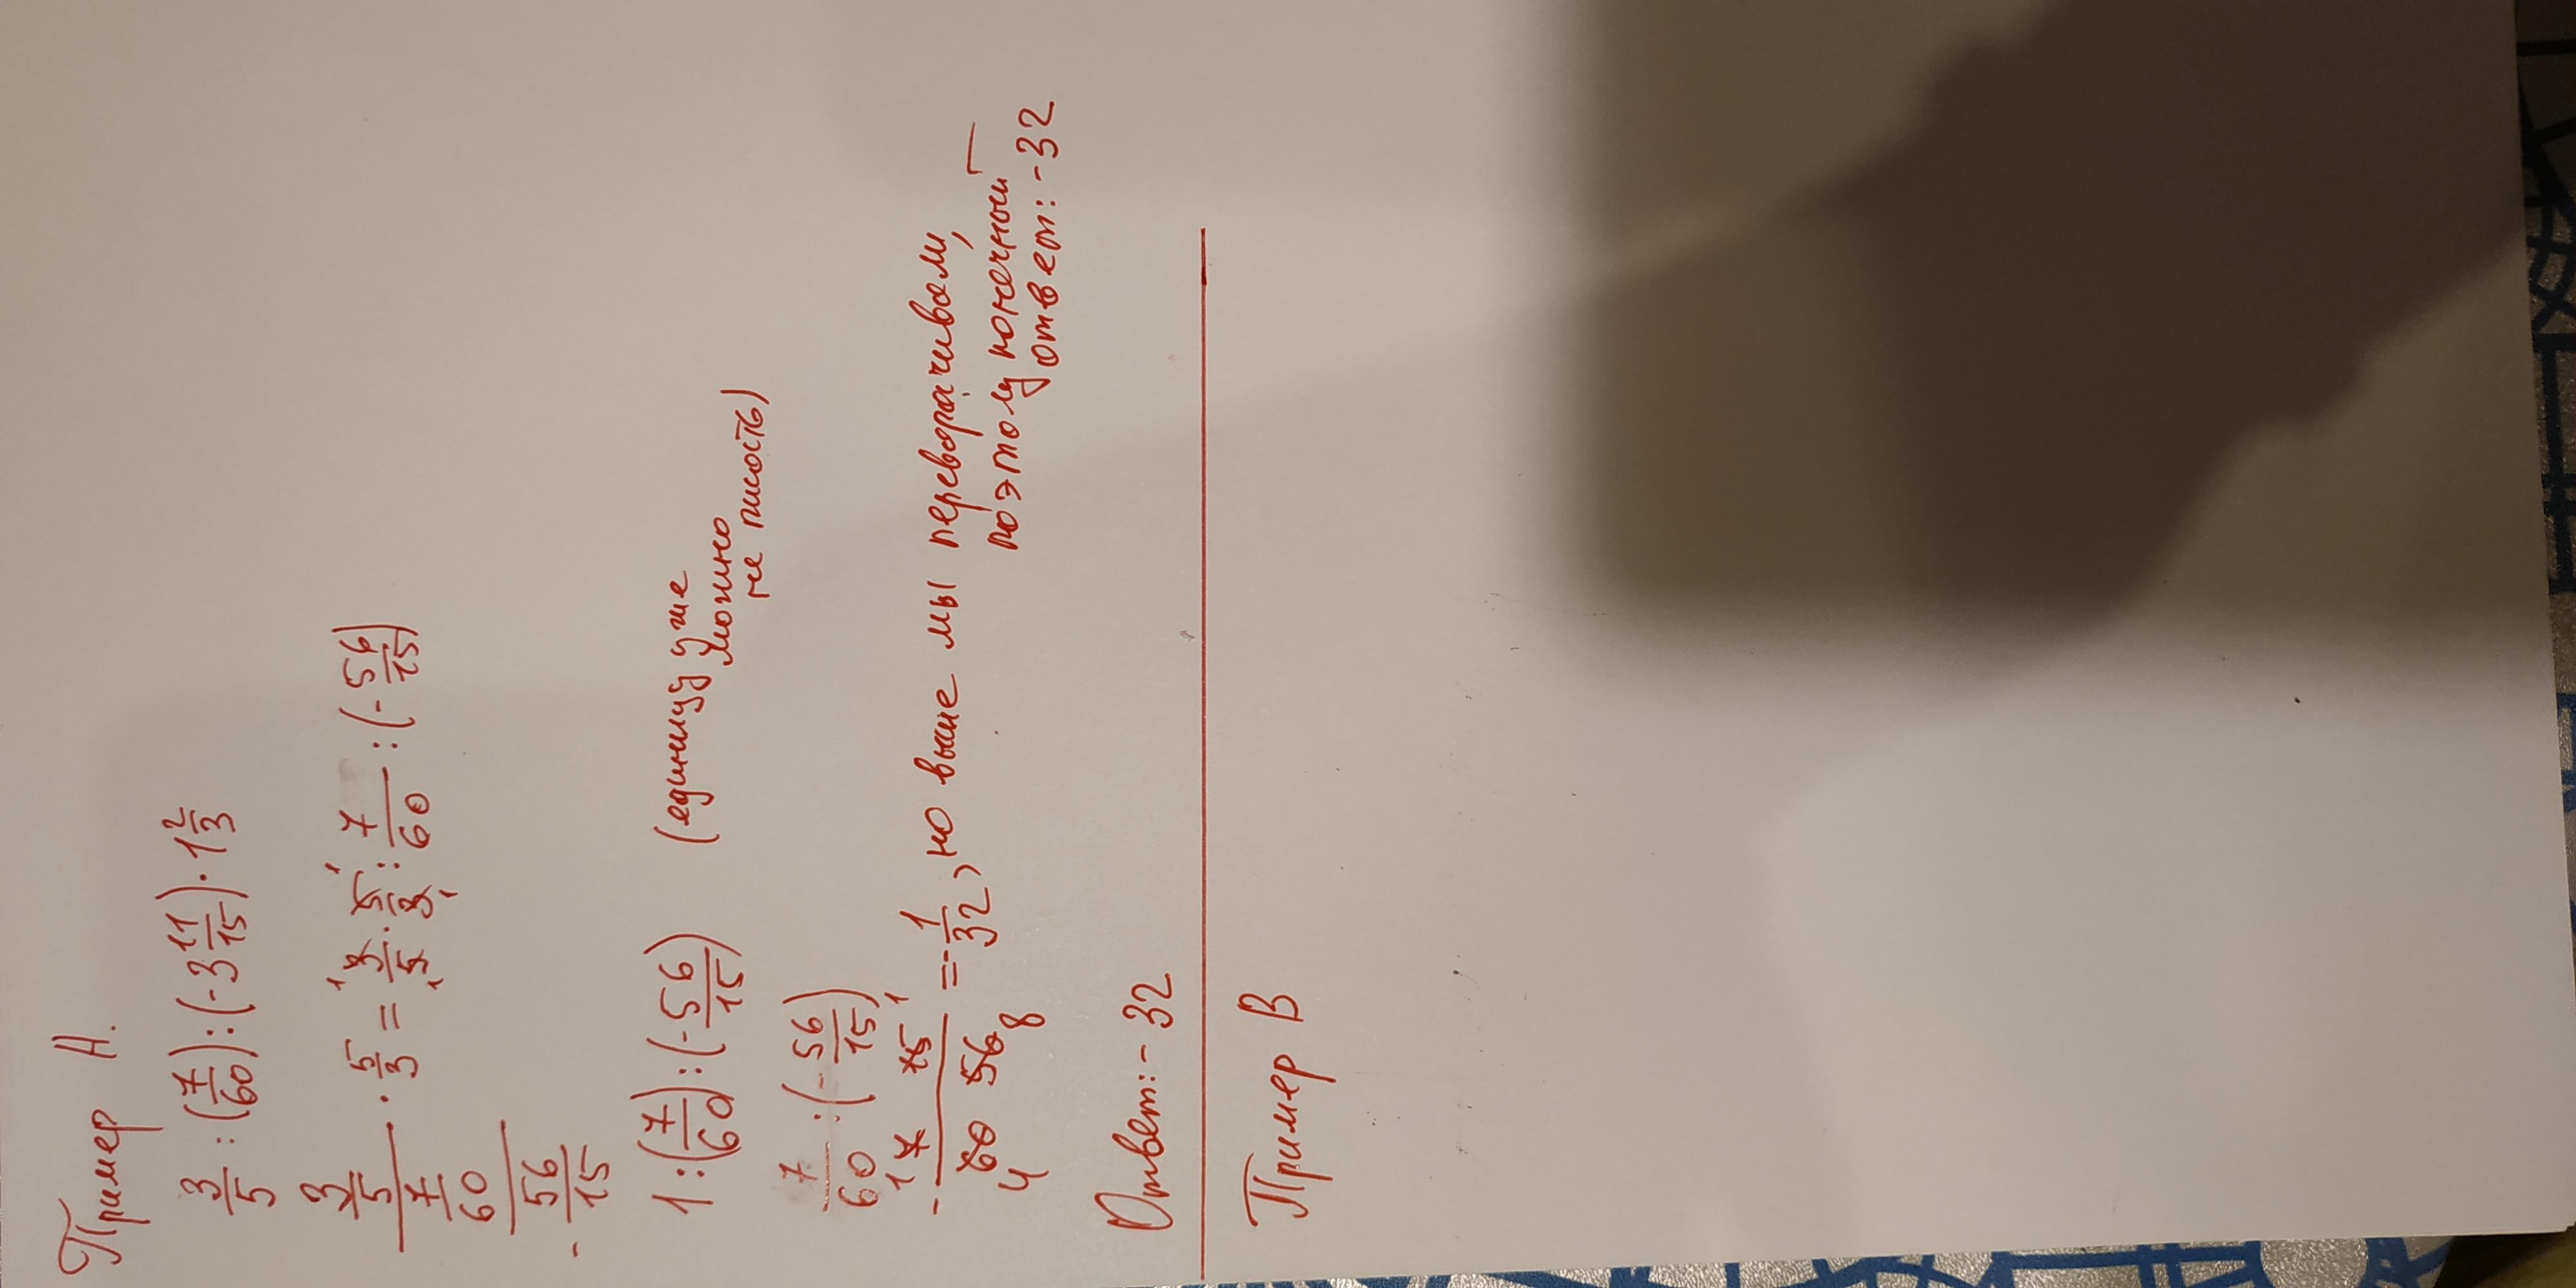 Пример А.
3/5 : (7/60) : (-3 11/15) · 1 2/3
3/5 / 7/60 / - 56/15 · 5/3 = 3/5 · 5/3 : 7/60 : (- 56/15)
1 : (7/60) : (- 56/15) (единицу уже
можно
не писать)
7/60 : (- 56/15)
- 7 15 / 60 56 = - 1/32, но выше мы переворачивали,
1 1 4 8
поэтому конечный
ответ: -32
Ответ: - 32
Пример В